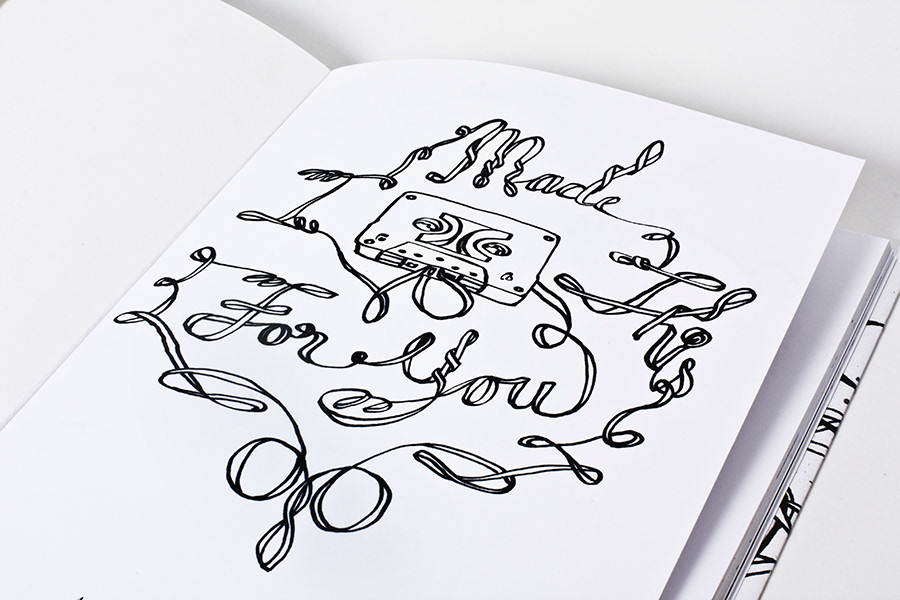 I Made
This
For You